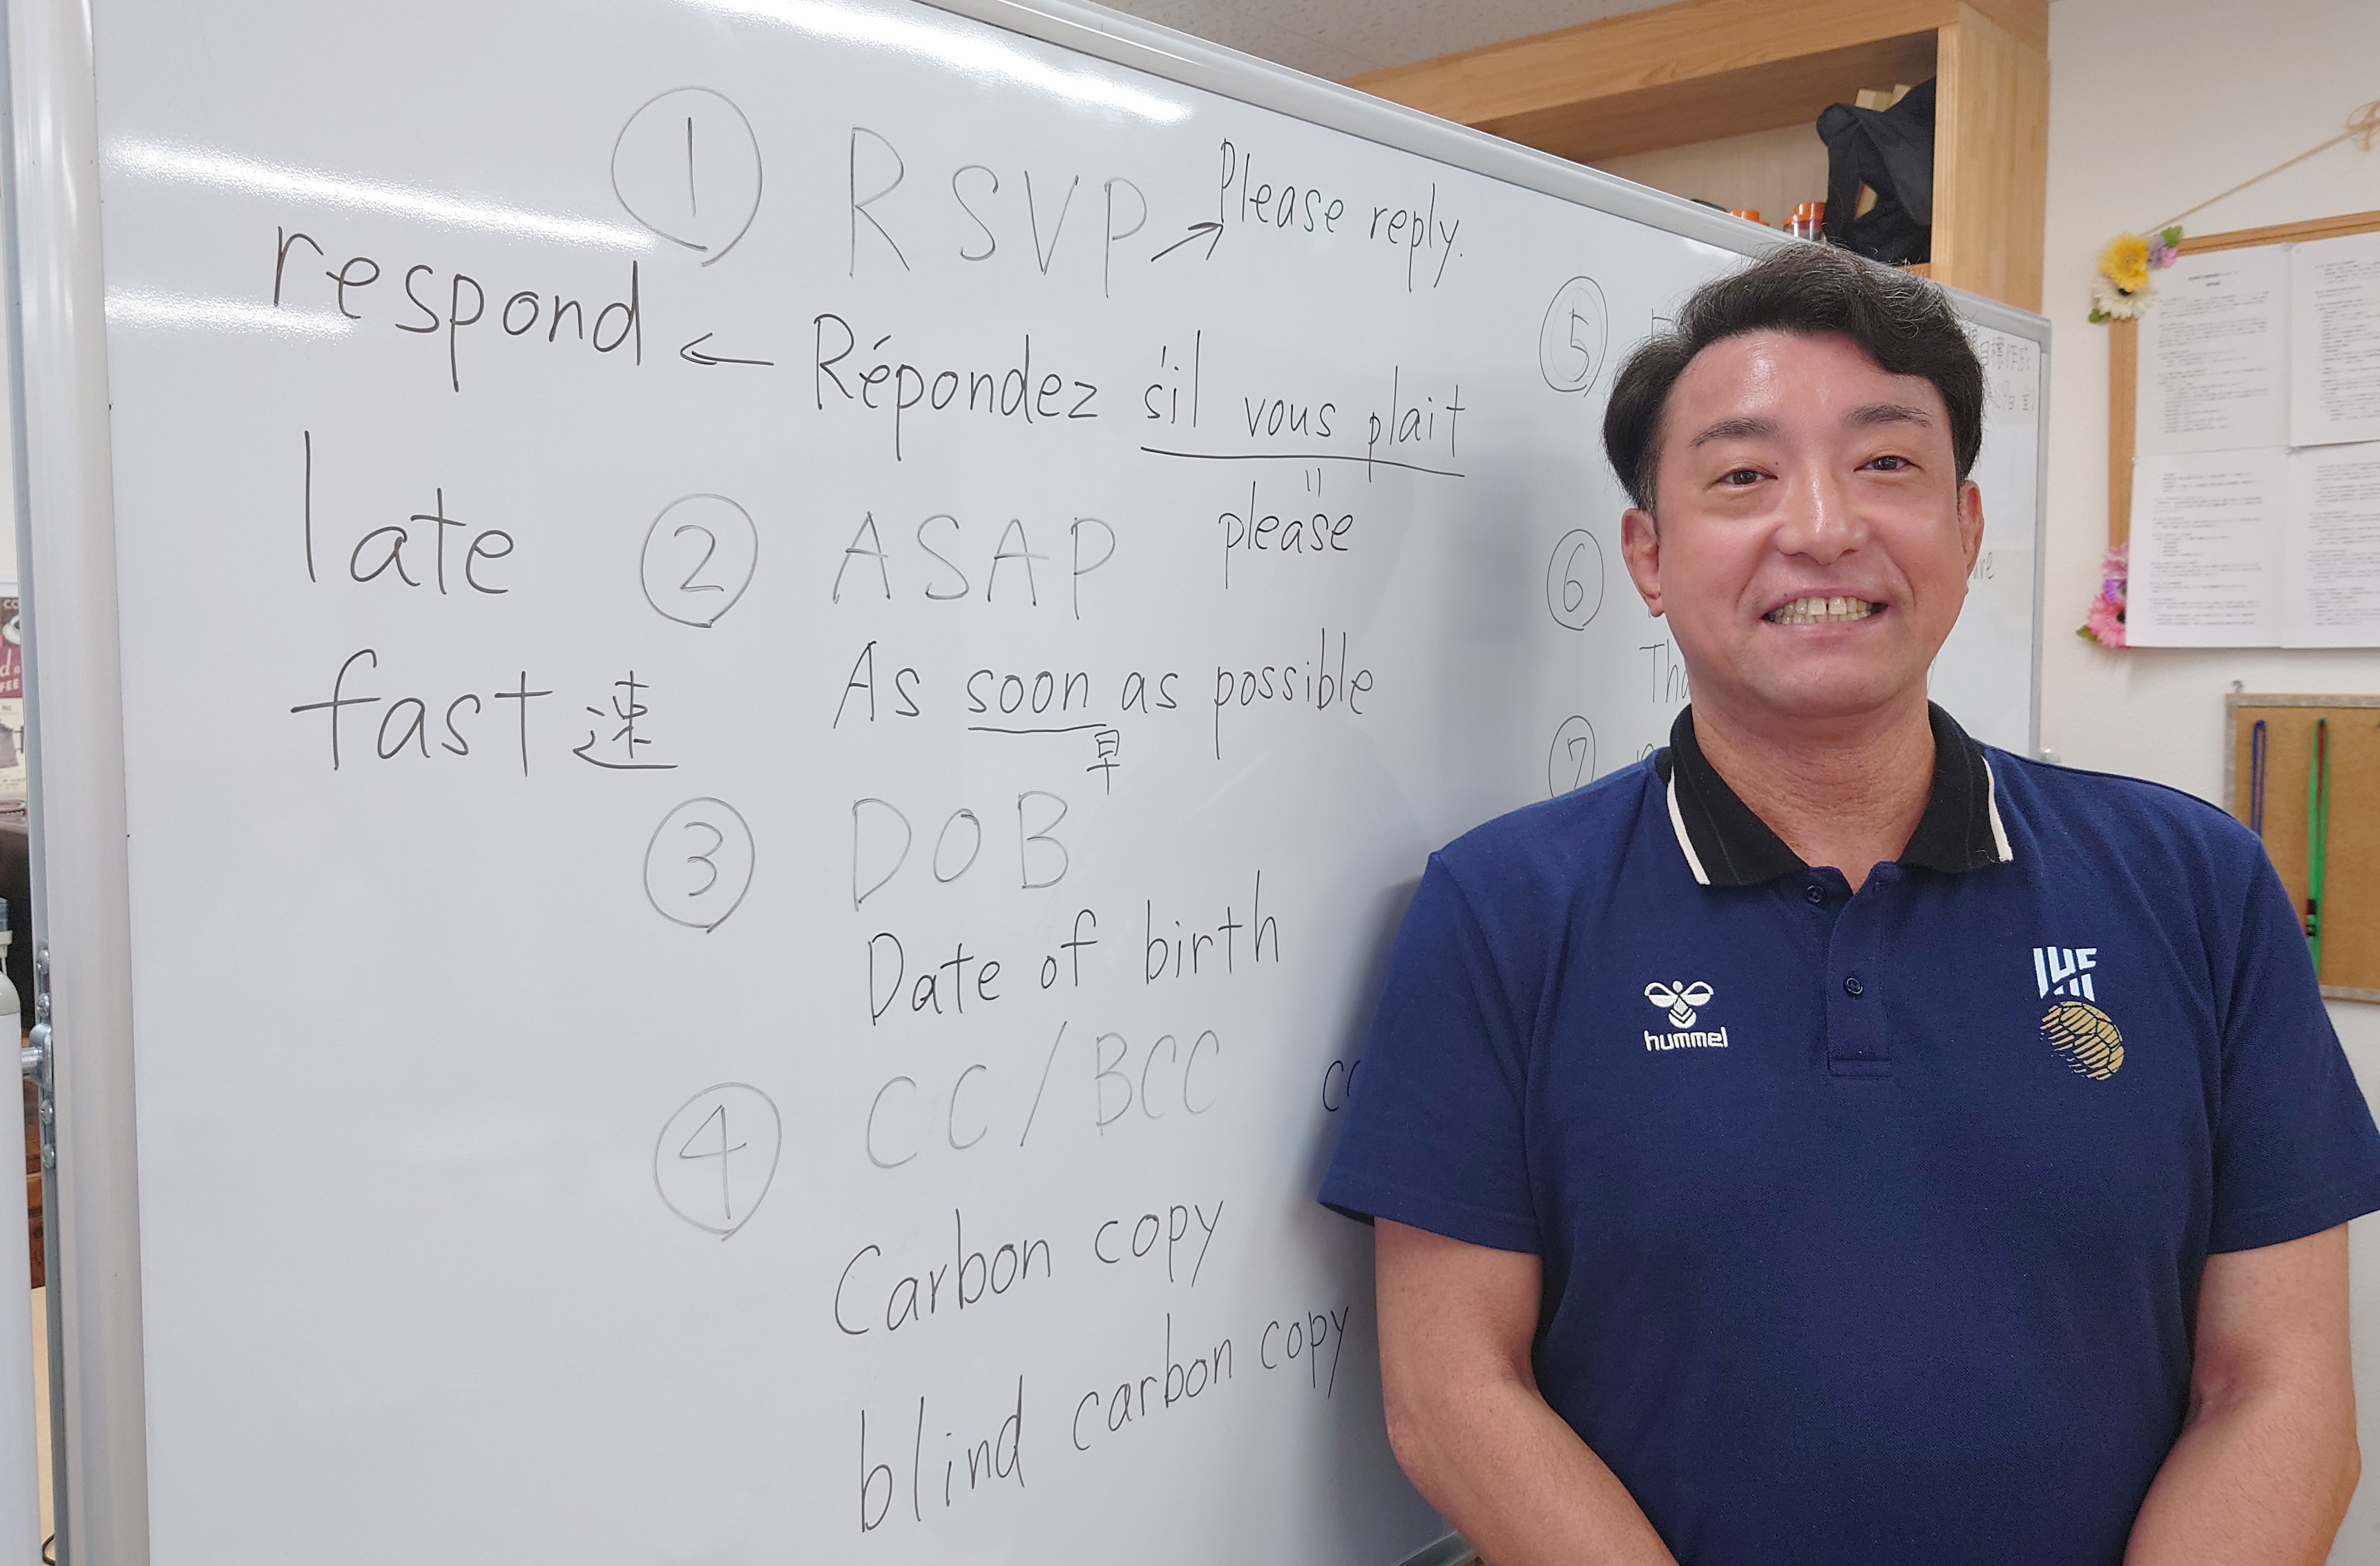 ① RSVP → Please reply.
respond ← Répondez s'il vous plait
=
please
late
② ASAP
As soon as possible
早
fast 速
③ DOB
Date of birth
④ CC/BCC
Carbon copy
blind carbon copy
⑤
⑥
⑦
hummel
IHF